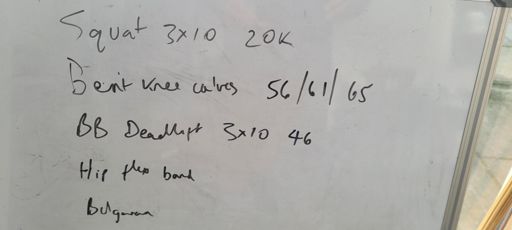 Squat 3x10 20K
Bent knee calves 56/61/65
BB Deadlift 3x10 46
Hip flex band
Bulgarian